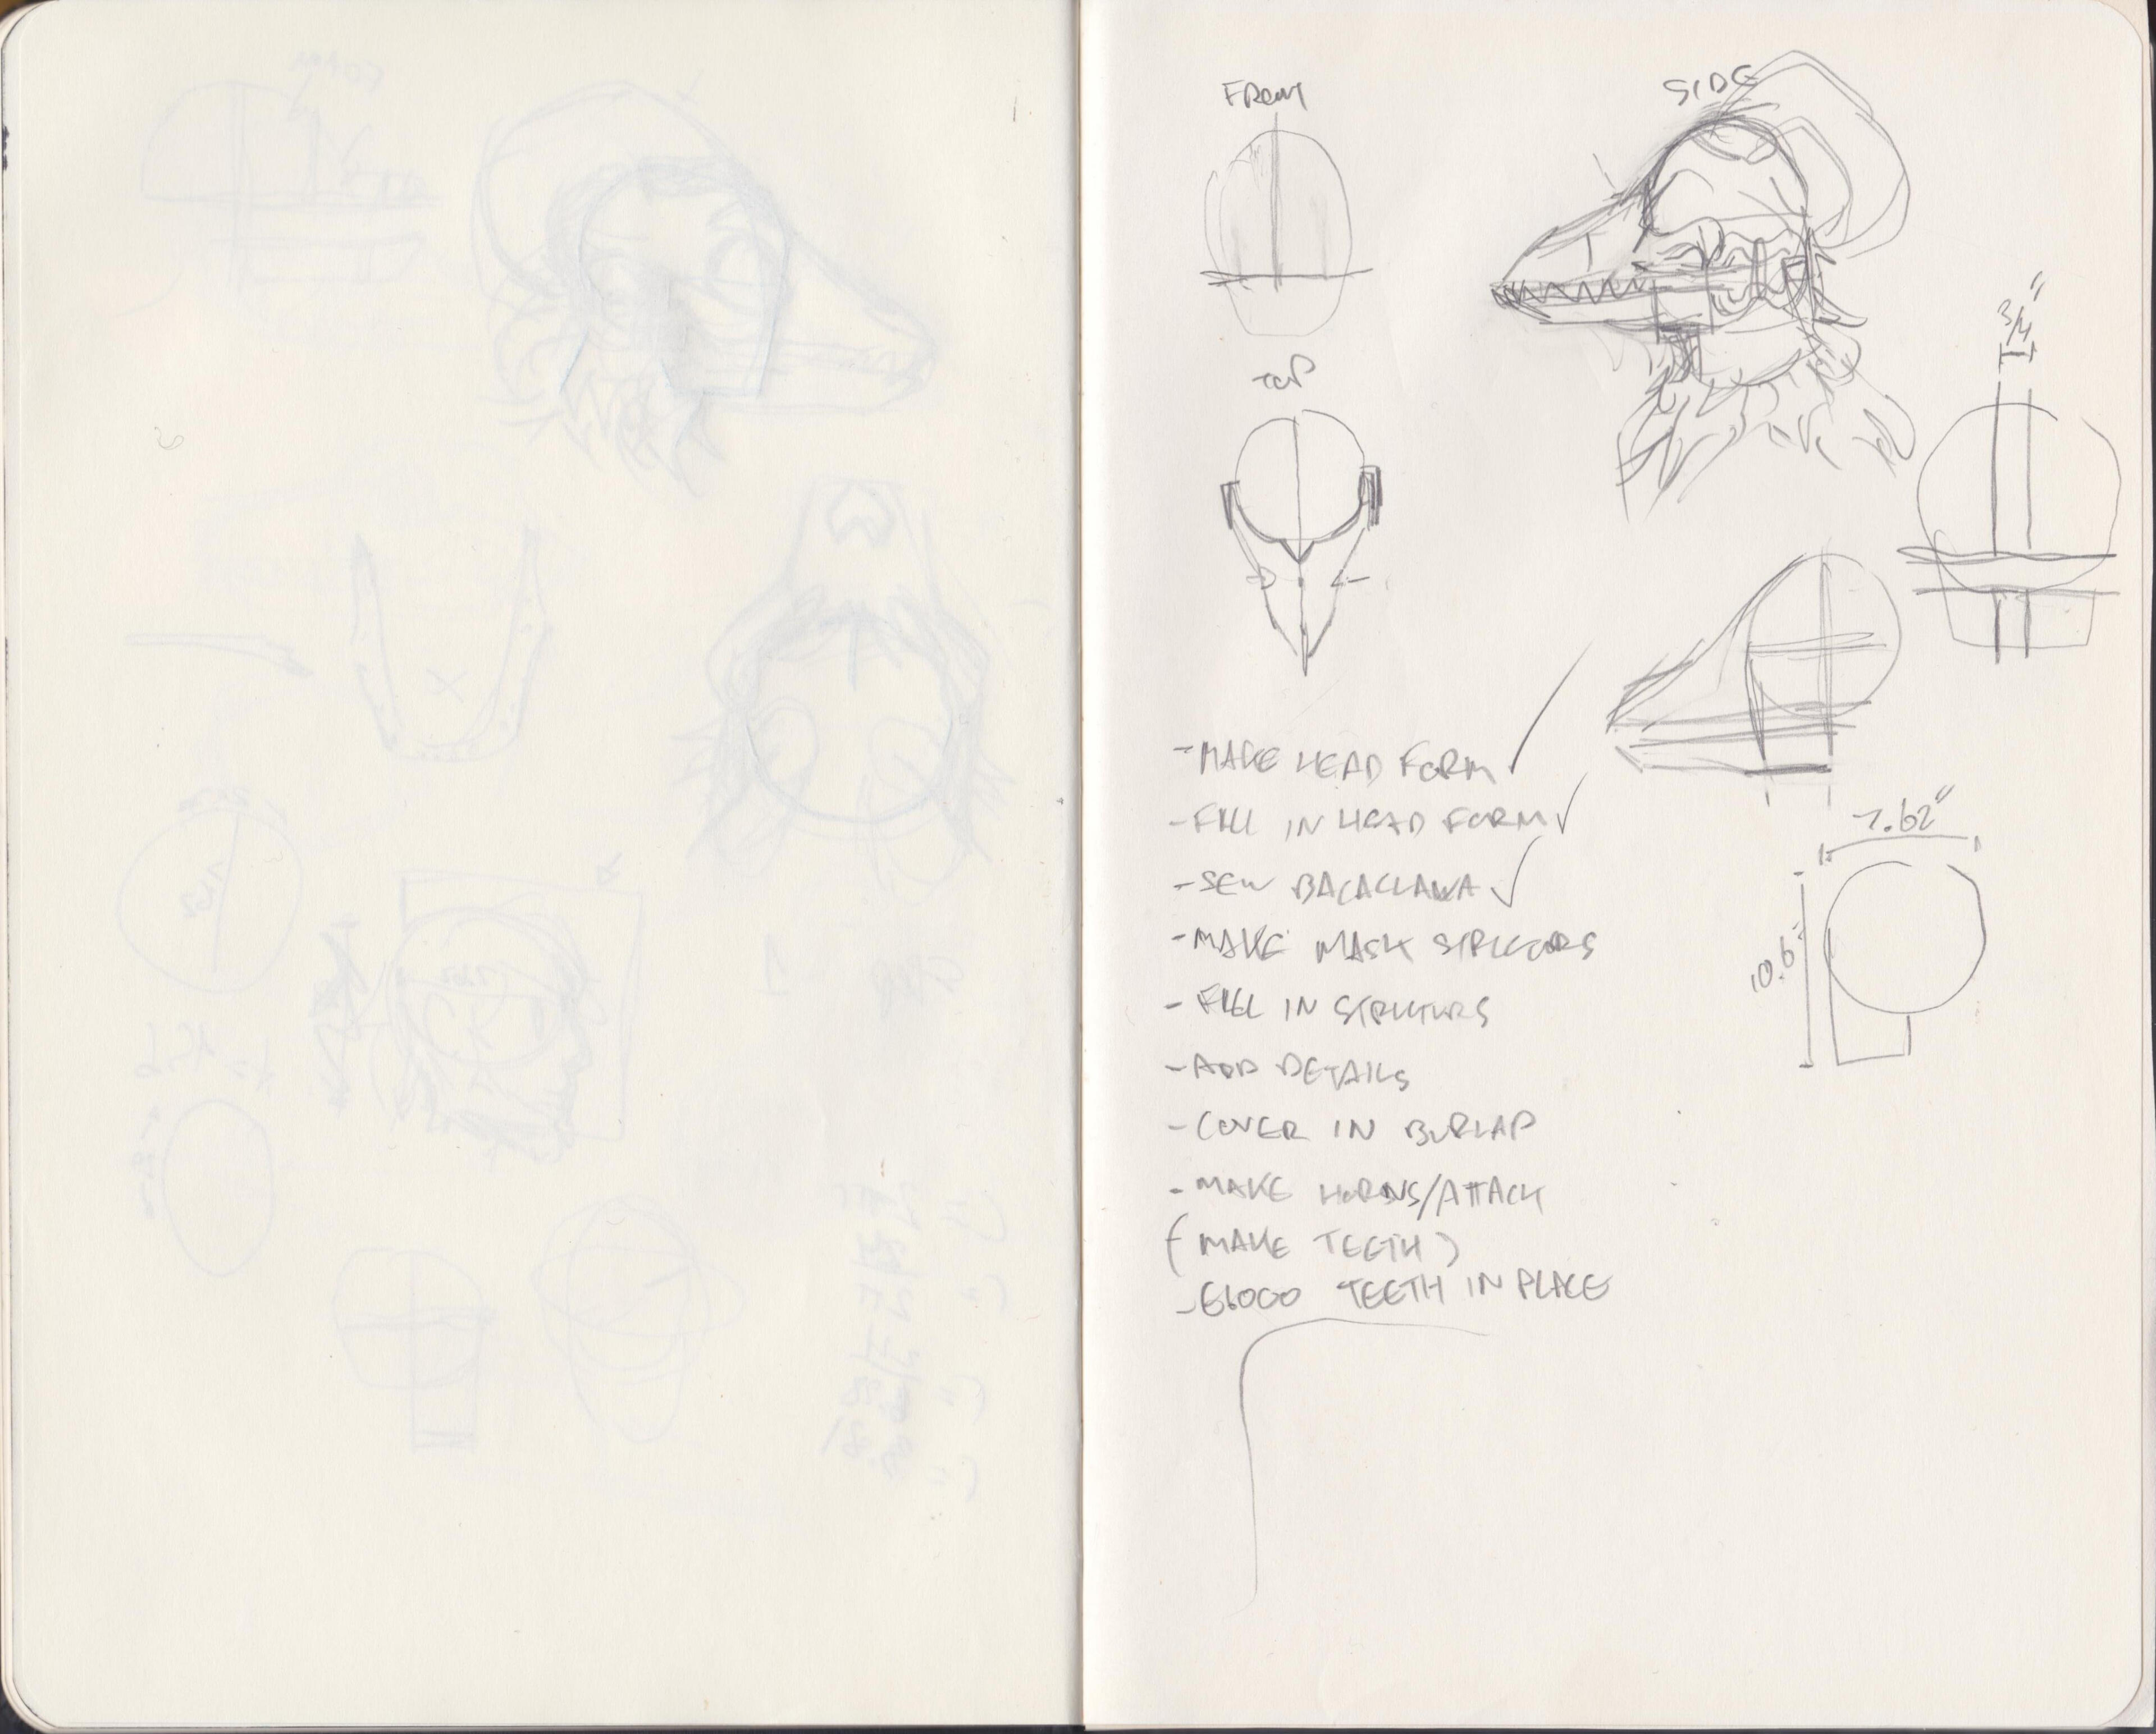 FRONT
SIDE
TOP
3/4"
- MAKE HEAD FORM ✓
- FILL IN HEAD FORM ✓
- SEW BACACLAVA ✓
- MAKE MASK
- FILL IN
- ADD DETAILS
- COVER IN BURLAP
- MAKE HORNS/ATTACK
(MAKE TEETH)
- E6000 TEETH IN PLACE
7.62"
10.6"